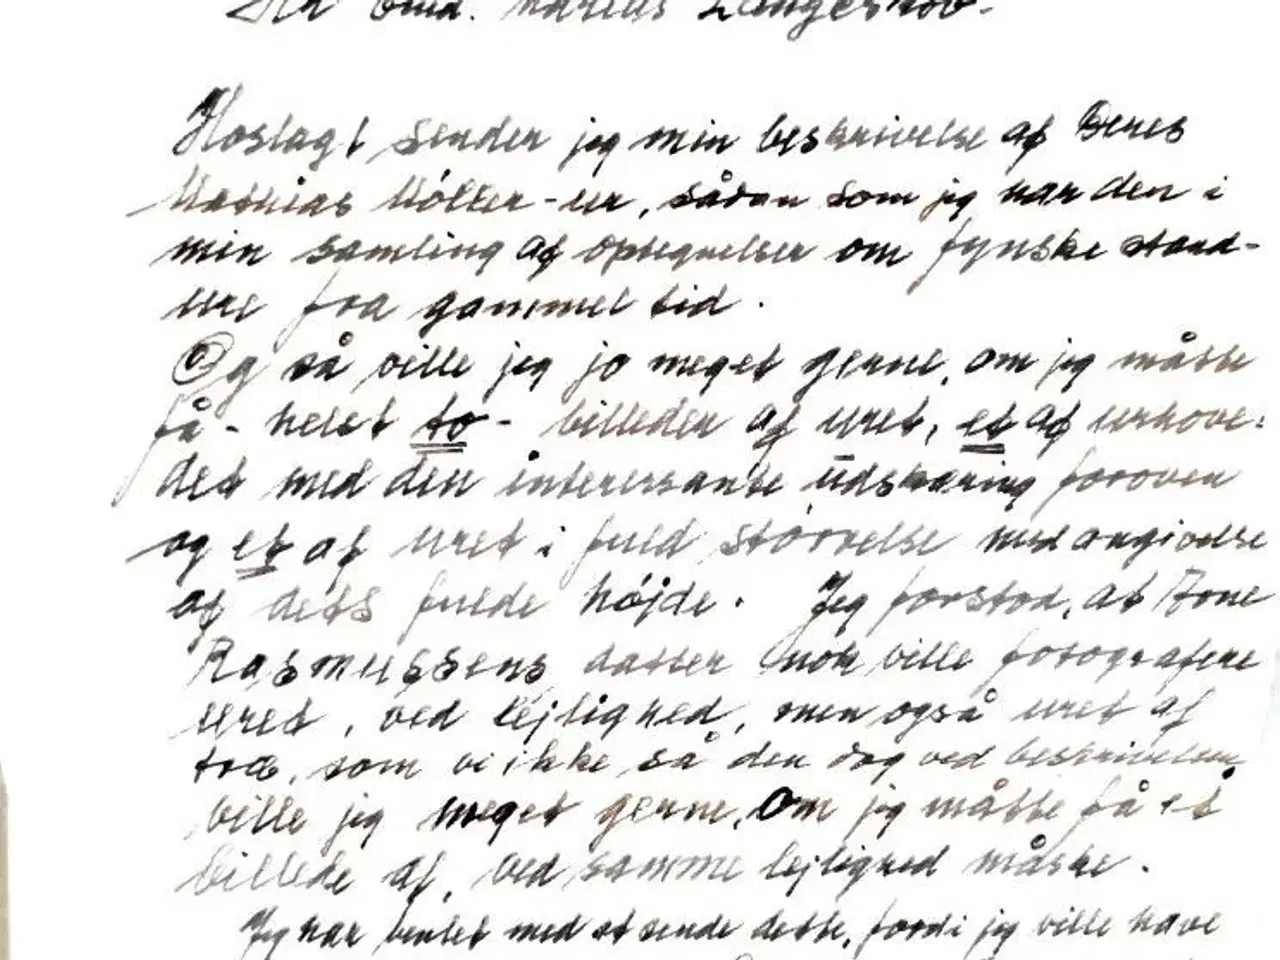 Marius Langeskov.
Hoslagt sender jeg min beskrivelse af Deres
Mathias Móller-ur, sådan som jeg har den i
min samling af optegnelser om fynske stand-
ure fra gammel tid.
Og så ville jeg jo meget gerne, om jeg måtte
få - helst to - billeder af uret, et af urhove-
det med den interessante udskæring foroven
og et af uret i fuld størrelse med angivelse
af dets fulde højde. Jeg forstod, at Arne
Rasmussens datter nok ville fotografere
uret, ved lejlighed, men også uret af
træ, som vi ikke så den dag ved beskrivelsen
ville jeg meget gerne, om jeg måtte få et
billede af, ved samme lejlighed måske.
Jeg har ventet med at sende dette, fordi jeg ville have